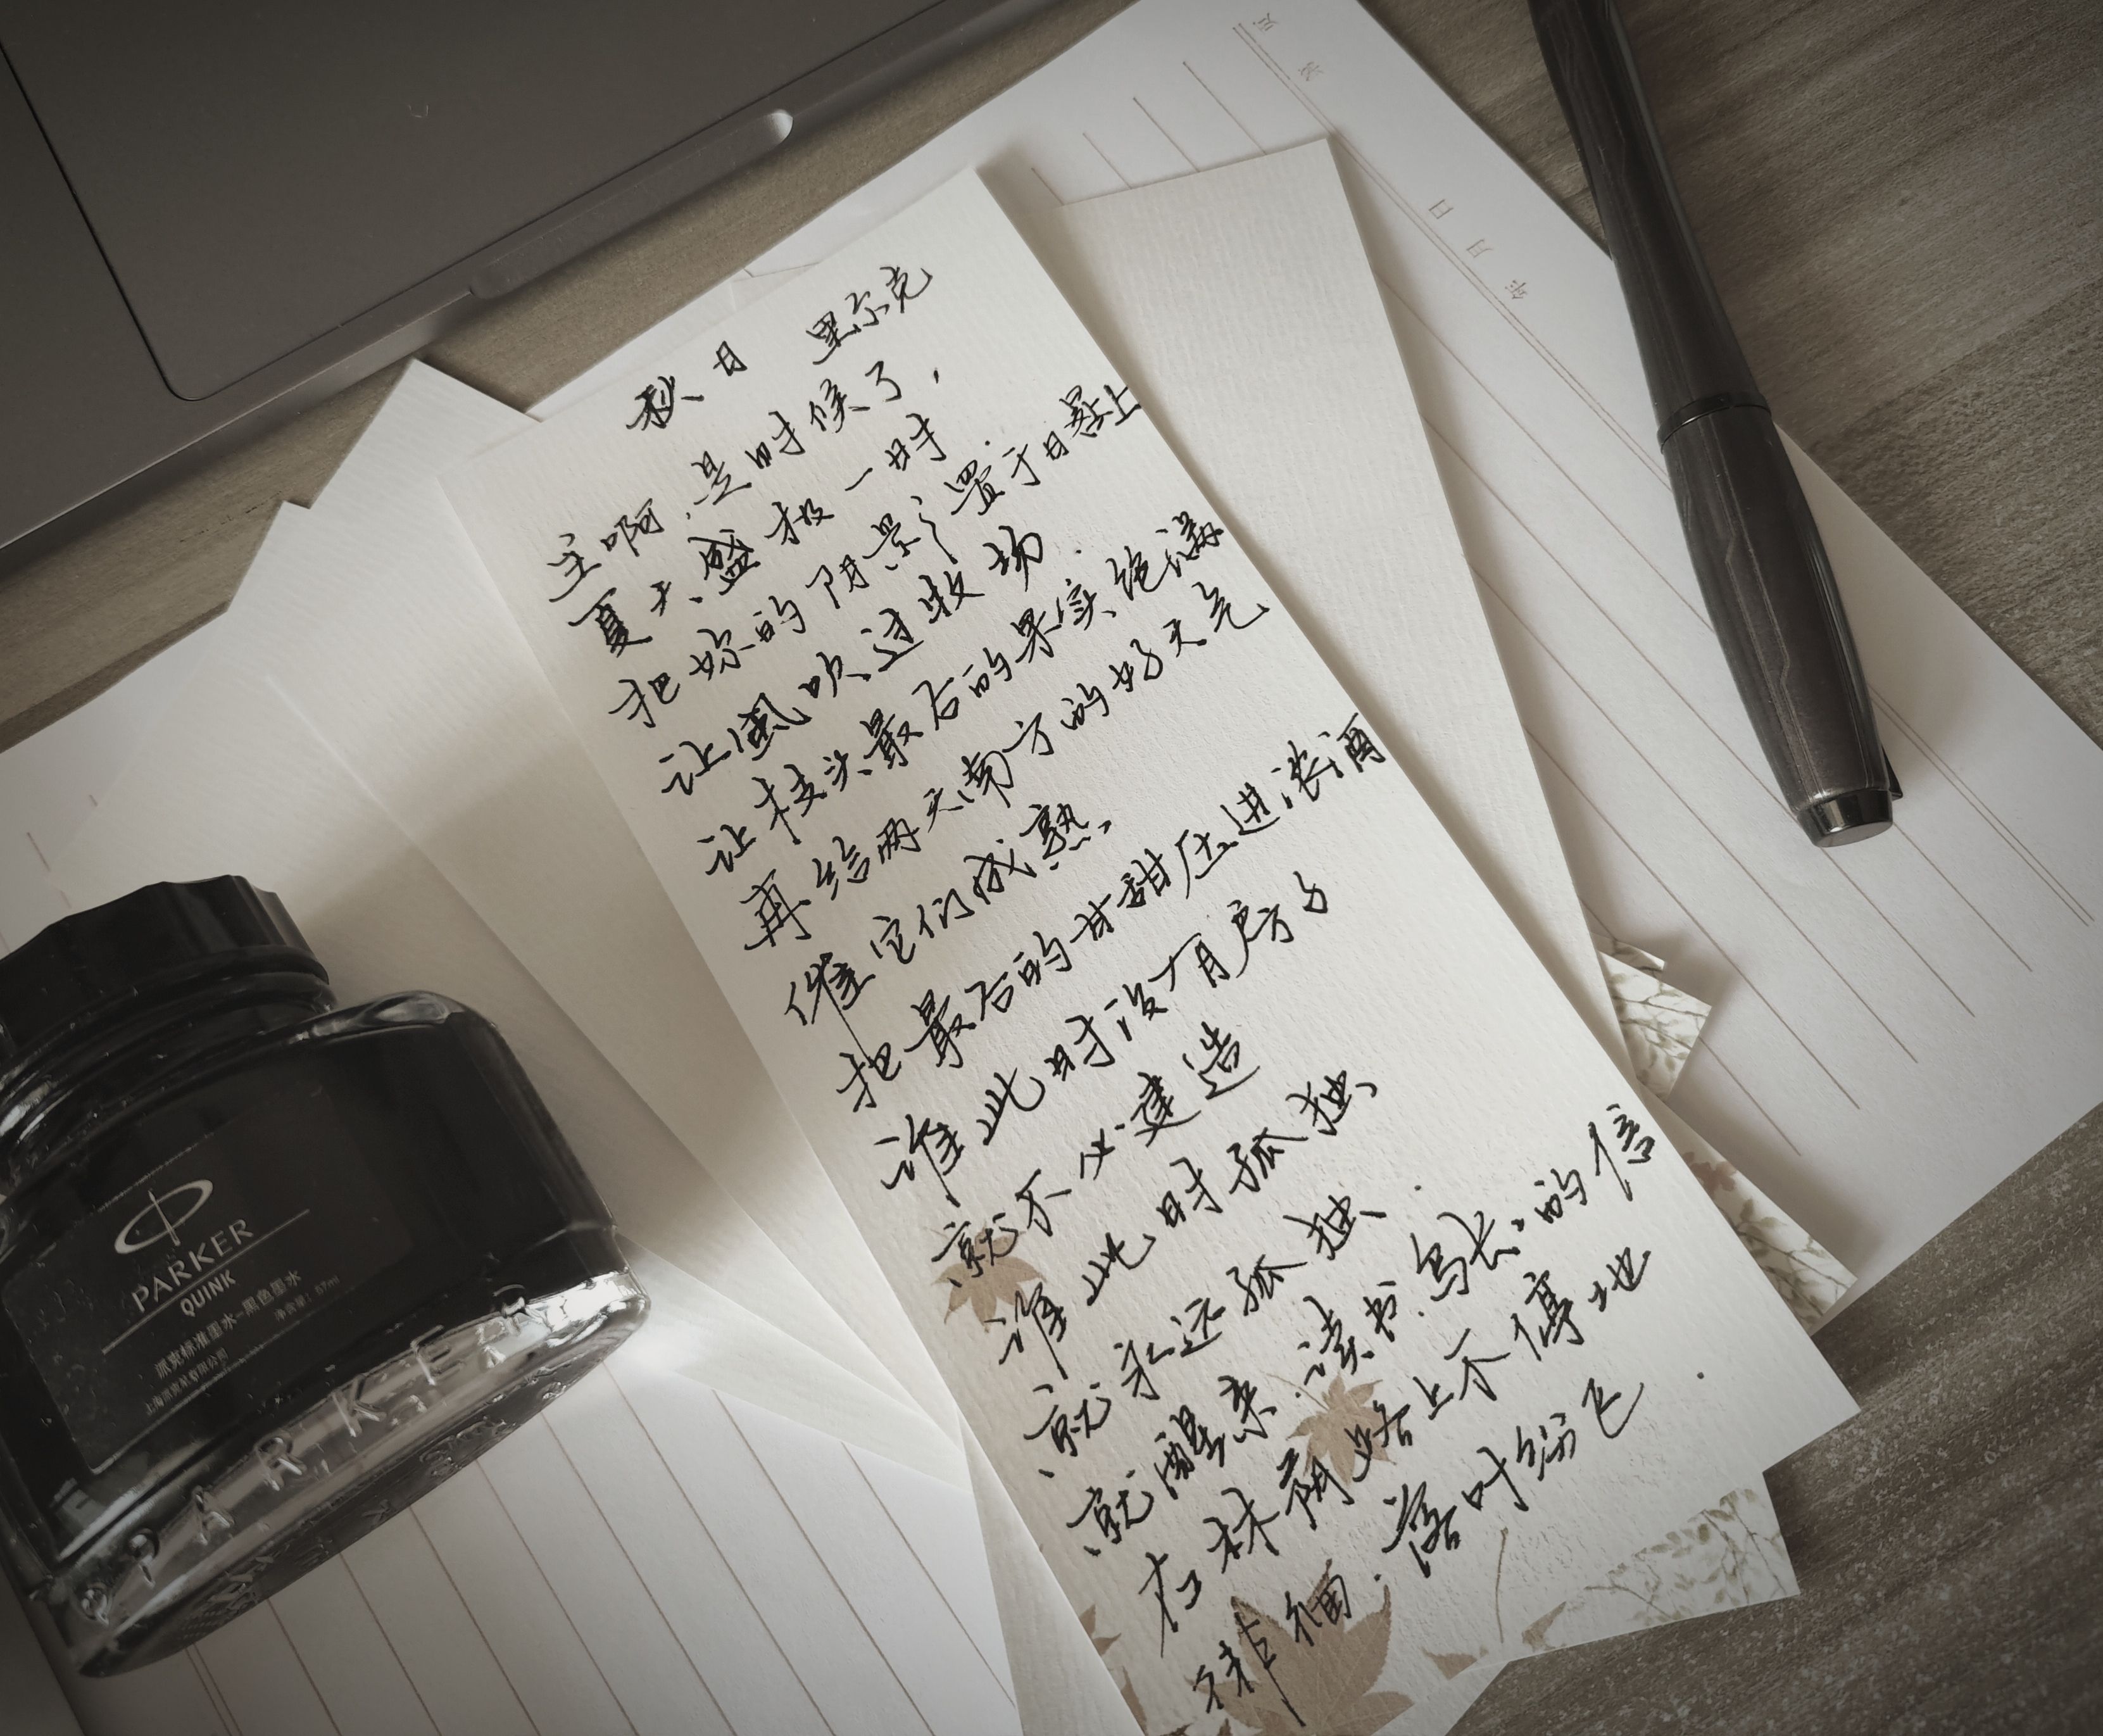 秋日 里尔克
主啊,是时候了,
夏天盛极一时.
把你的阴影置于日晷上
让风吹过牧场.
让枝头最后的果实饱满
再给两天南方的好天气
催它们成熟,
把最后的甘甜压进浓酒
谁此时没有房子
就不必建造
谁此时孤独
就永远孤独.
就醒来.读书.写长长的信
在林荫路上不停地
徘徊.落叶纷飞.
PARKER
QUINK
派克标准墨水-黑色墨水
净含量:57ml
PARKER
年 月 日